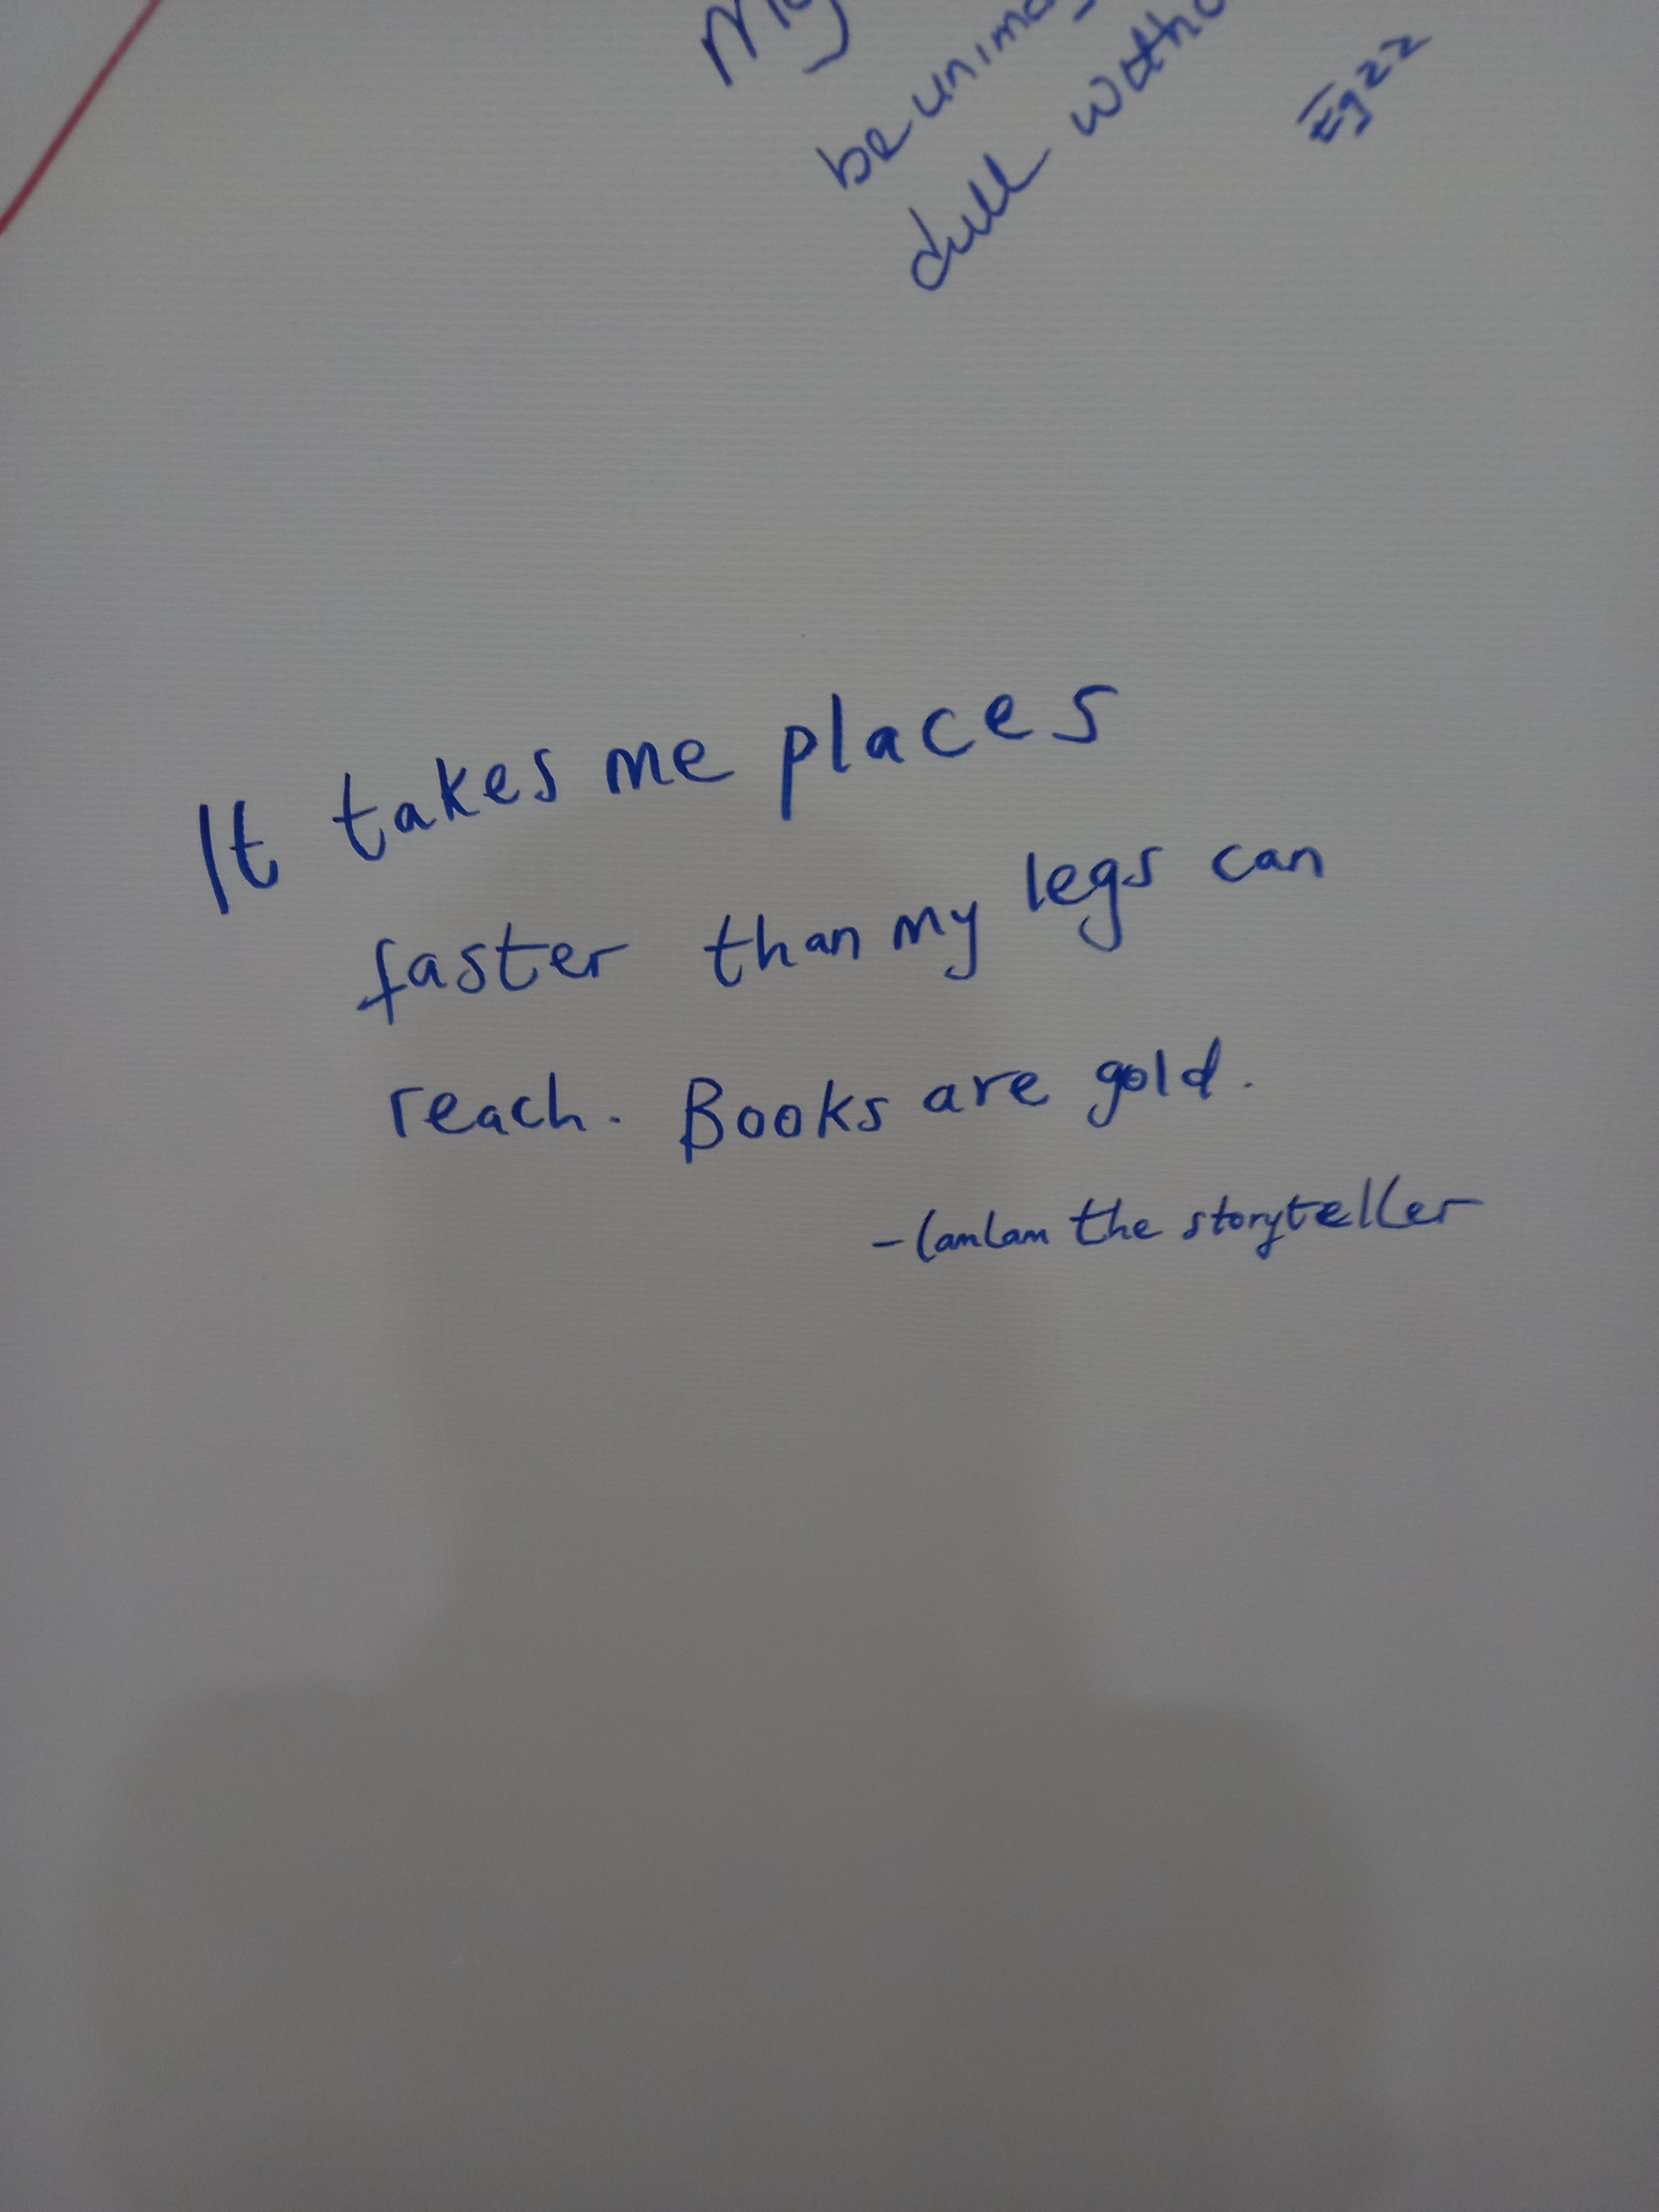 be
dull
It takes me places
faster than my legs can
reach. Books are gold.
- Lamlam the storyteller